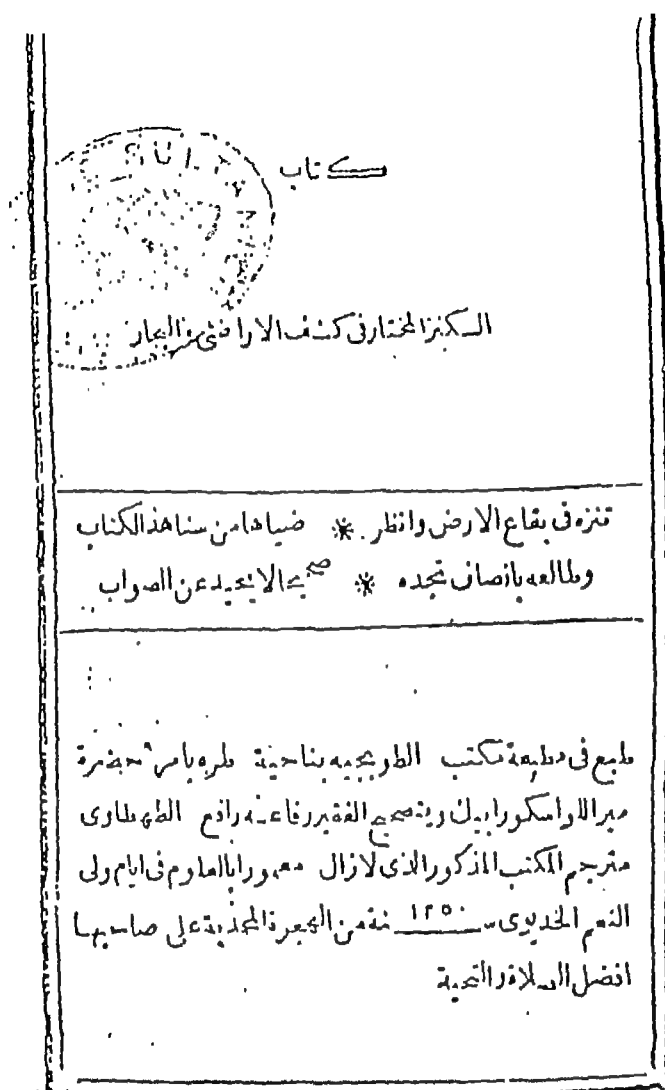 كتاب
SULTAN
الكنز المختار فى كشف الاراضى والبحار
تنزه فى بقاع الارض وانظر * ضياها من سنا هذ الكتاب
وطالعه بانصاف تجده * صحيحا لا يحيد عن الصواب
طبع فى مطبعة مكتب الطوبجيه بناحية طره بامر حضرة
مير اللوا سكورا بيك وبتصحيح الفقير رفاعه رافع الطهطاوى
مترجم المكتب المذكور الذى لازال معمورا بالعلوم فى ايام ولى
النعم الخديوى سنة ١٢٥٠ من الهجرة المحمدية على صاحبها
افضل الصلاة والتحية